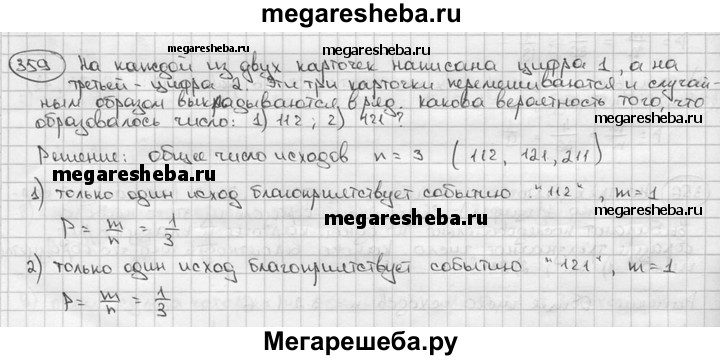 megaresheba.ru
359 На каждой из двух карточек написана цифра 1, а на
третьей - цифра 2. Эти три карточки перемешиваются и случай-
ным образом выкладываются в ряд. какова вероятность того, что
образовалось число: 1) 112; 2) 121?
Решение: общее число исходов n = 3 (112, 121, 211)
megaresheba.ru
1) только один исход благоприятствует событию "112", m = 1
megaresheba.ru
megaresheba.ru
P = m/n = 1/3
2) только один исход благоприятствует событию "121", m = 1
P = m/n = 1/3
Мегарешеба.ру